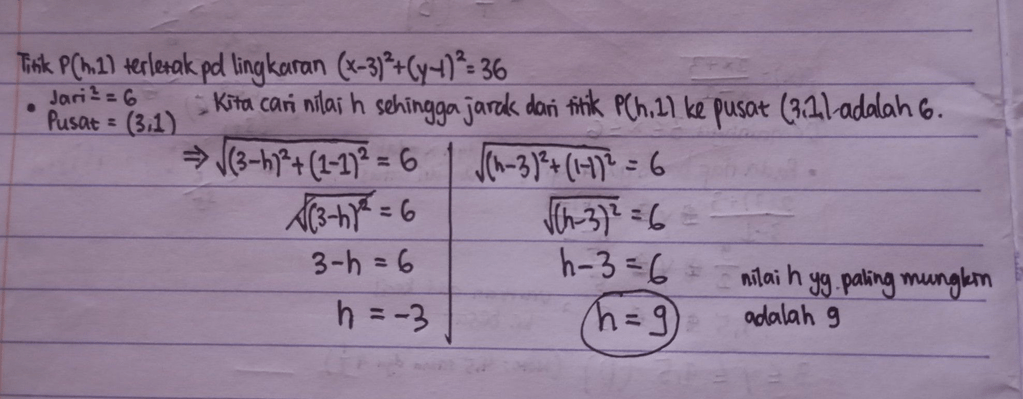 Titik P(h,1) terletak pd lingkaran (x-3)²+(y-1)²=36
• Jari² = 6
Pusat = (3,1)
Kita cari nilai h sehingga jarak dari titik P(h,1) ke pusat (3,1) adalah 6.
⇒ √(3-h)²+(1-1)² = 6
√(3-h)² = 6
3-h = 6
h = -3
√(h-3)²+(1-1)² = 6
√(h-3)² = 6
h-3 = 6
h = 9
nilai h yg. paling mungkin
adalah 9